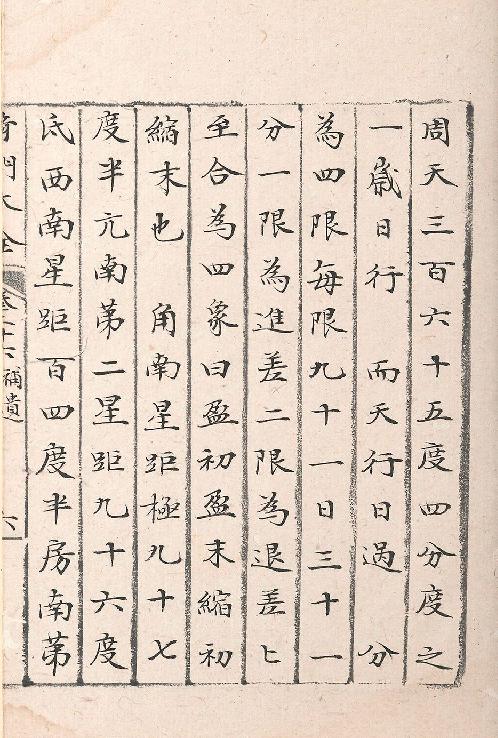 周天三百六十五度四分度之
一歲日行　而天行日過　分
為四限每限九十一日三十一
分一限為進差二限為退差匕
至合為四象曰盈初盈末縮初
縮末也　角南星距極九十七
度半亢南第二星距九十六度
氐西南星距百四度半房南第
奇門大全　卷二十六補遺　六